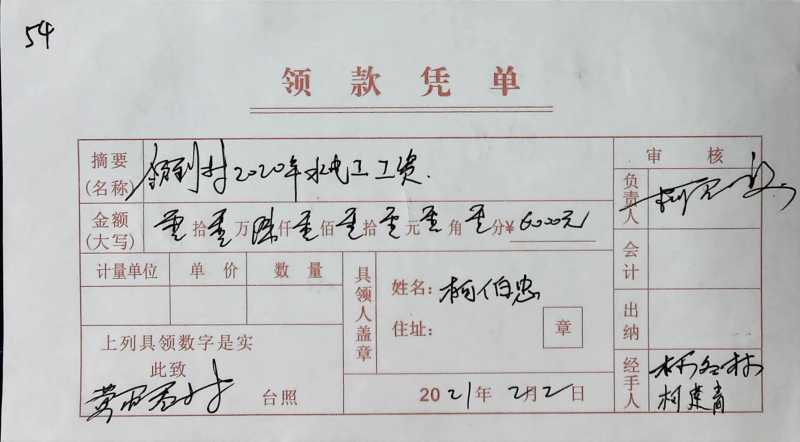 54
领款凭单
摘要
(名称)
村2020年水电工工资.
审核
负责人
金额
(大写)
零拾零万陆仟零佰零拾零元零角零分¥ 6000元
会计
计量单位 单价 数量
具领人盖章
姓名：柯伯忠
住址：
章
出纳
上列具领数字是实
此致
台照
2021年2月2日
经手人
柯建斋